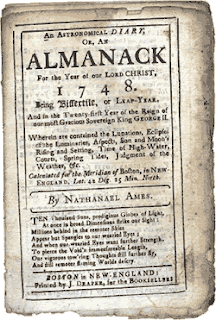 An ASTRONOMICAL DIARY,
OR, AN
ALMANACK
For the Year of our LORD CHRIST,
1748.
Being Bissextile, or LEAP-YEAR.
And in the Twenty-first Year of the Reign of
our most Gracious Sovereign King GEORGE II.
Wherein are contained the Lunations, Eclipses
of the Luminaries, Aspects, Sun and Moon's
Rising and Setting, Time of High-Water,
Courts, Spring Tides, Judgment of the
Weather, &c.
Calculated for the Meridian of Boston, in NEW
ENGLAND, Lat. 42 Deg. 25 Min. North.
By NATHANAEL AMES.
TEN thousand Suns, prodigious Globes of Light,
At once in broad Dimensions strike our Sight;
Millions behind in the remoter Skies
Appear but Spangles to our wearied Eyes:
And when our wearied Eyes want farther Strength,
To pierce the Void's immeasurable Length,
Our vigorous towring Thoughts still further fly,
And still remoter flaming Worlds descry
BOSTON in NEW-ENGLAND:
Printed by J. DRAPER, for the BOOKSELLERS